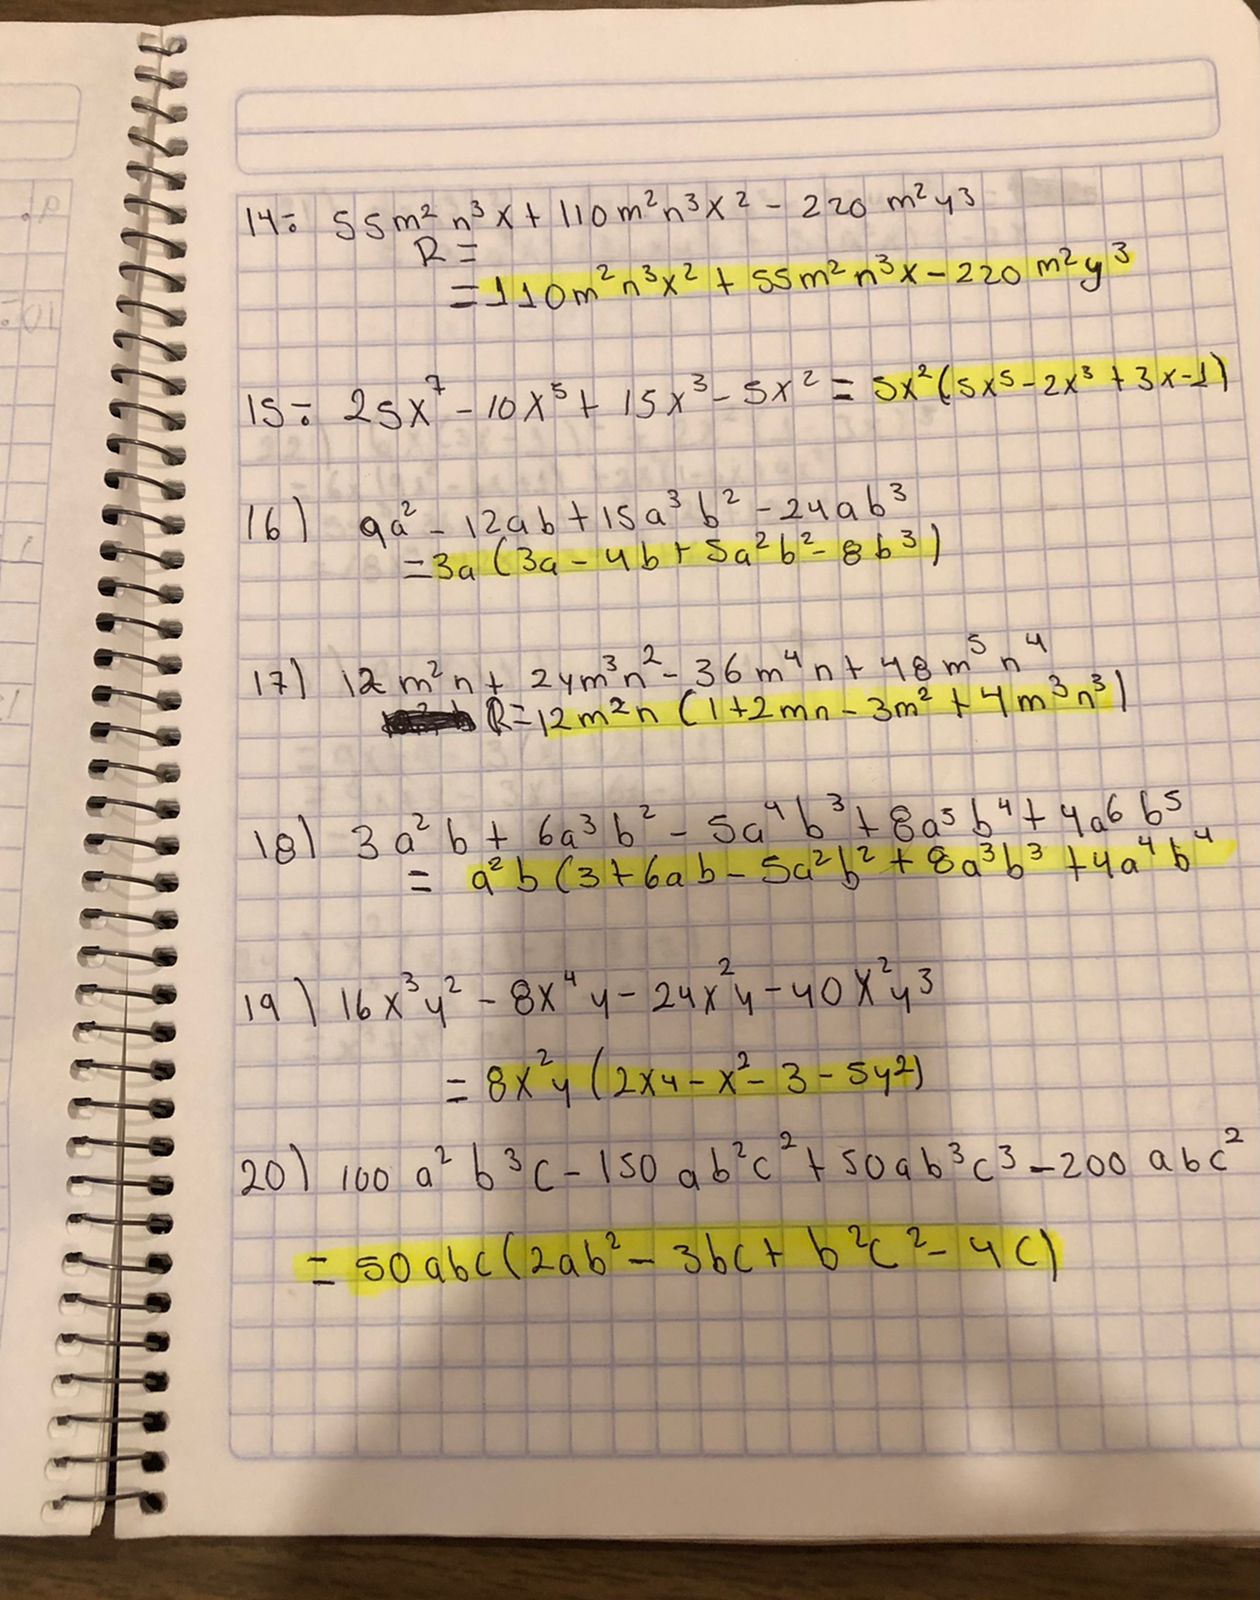 14÷ 55m² n³x + 110m²n³x² - 220 m²y³
R =
= 110m²n³x² + 55m²n³x - 220 m²y³
15÷ 25x⁷ - 10x⁵ + 15x³ - 5x² = 5x²(5x⁵ - 2x³ + 3x - 1)
16) 9a² - 12ab + 15a³b² - 24ab³
= 3a (3a - 4b + 5a²b² - 8b³)
17) 12m²n + 24m³n² - 36m⁴n + 48m⁵n⁴
R = 12m²n (1 + 2mn - 3m² + 4m³n³)
18) 3a²b + 6a³b² - 5a⁴b³ + 8a⁵b⁴ + 4a⁶b⁵
= a²b (3 + 6ab - 5a²b² + 8a³b³ + 4a⁴b⁴
19) 16x³y² - 8x⁴y - 24x²y - 40x²y³
= 8x²y (2xy - x² - 3 - 5y²)
20) 100 a²b³c - 150 ab²c² + 50ab³c³ - 200 abc²
= 50abc (2ab² - 3bc + b²c² - 4c)